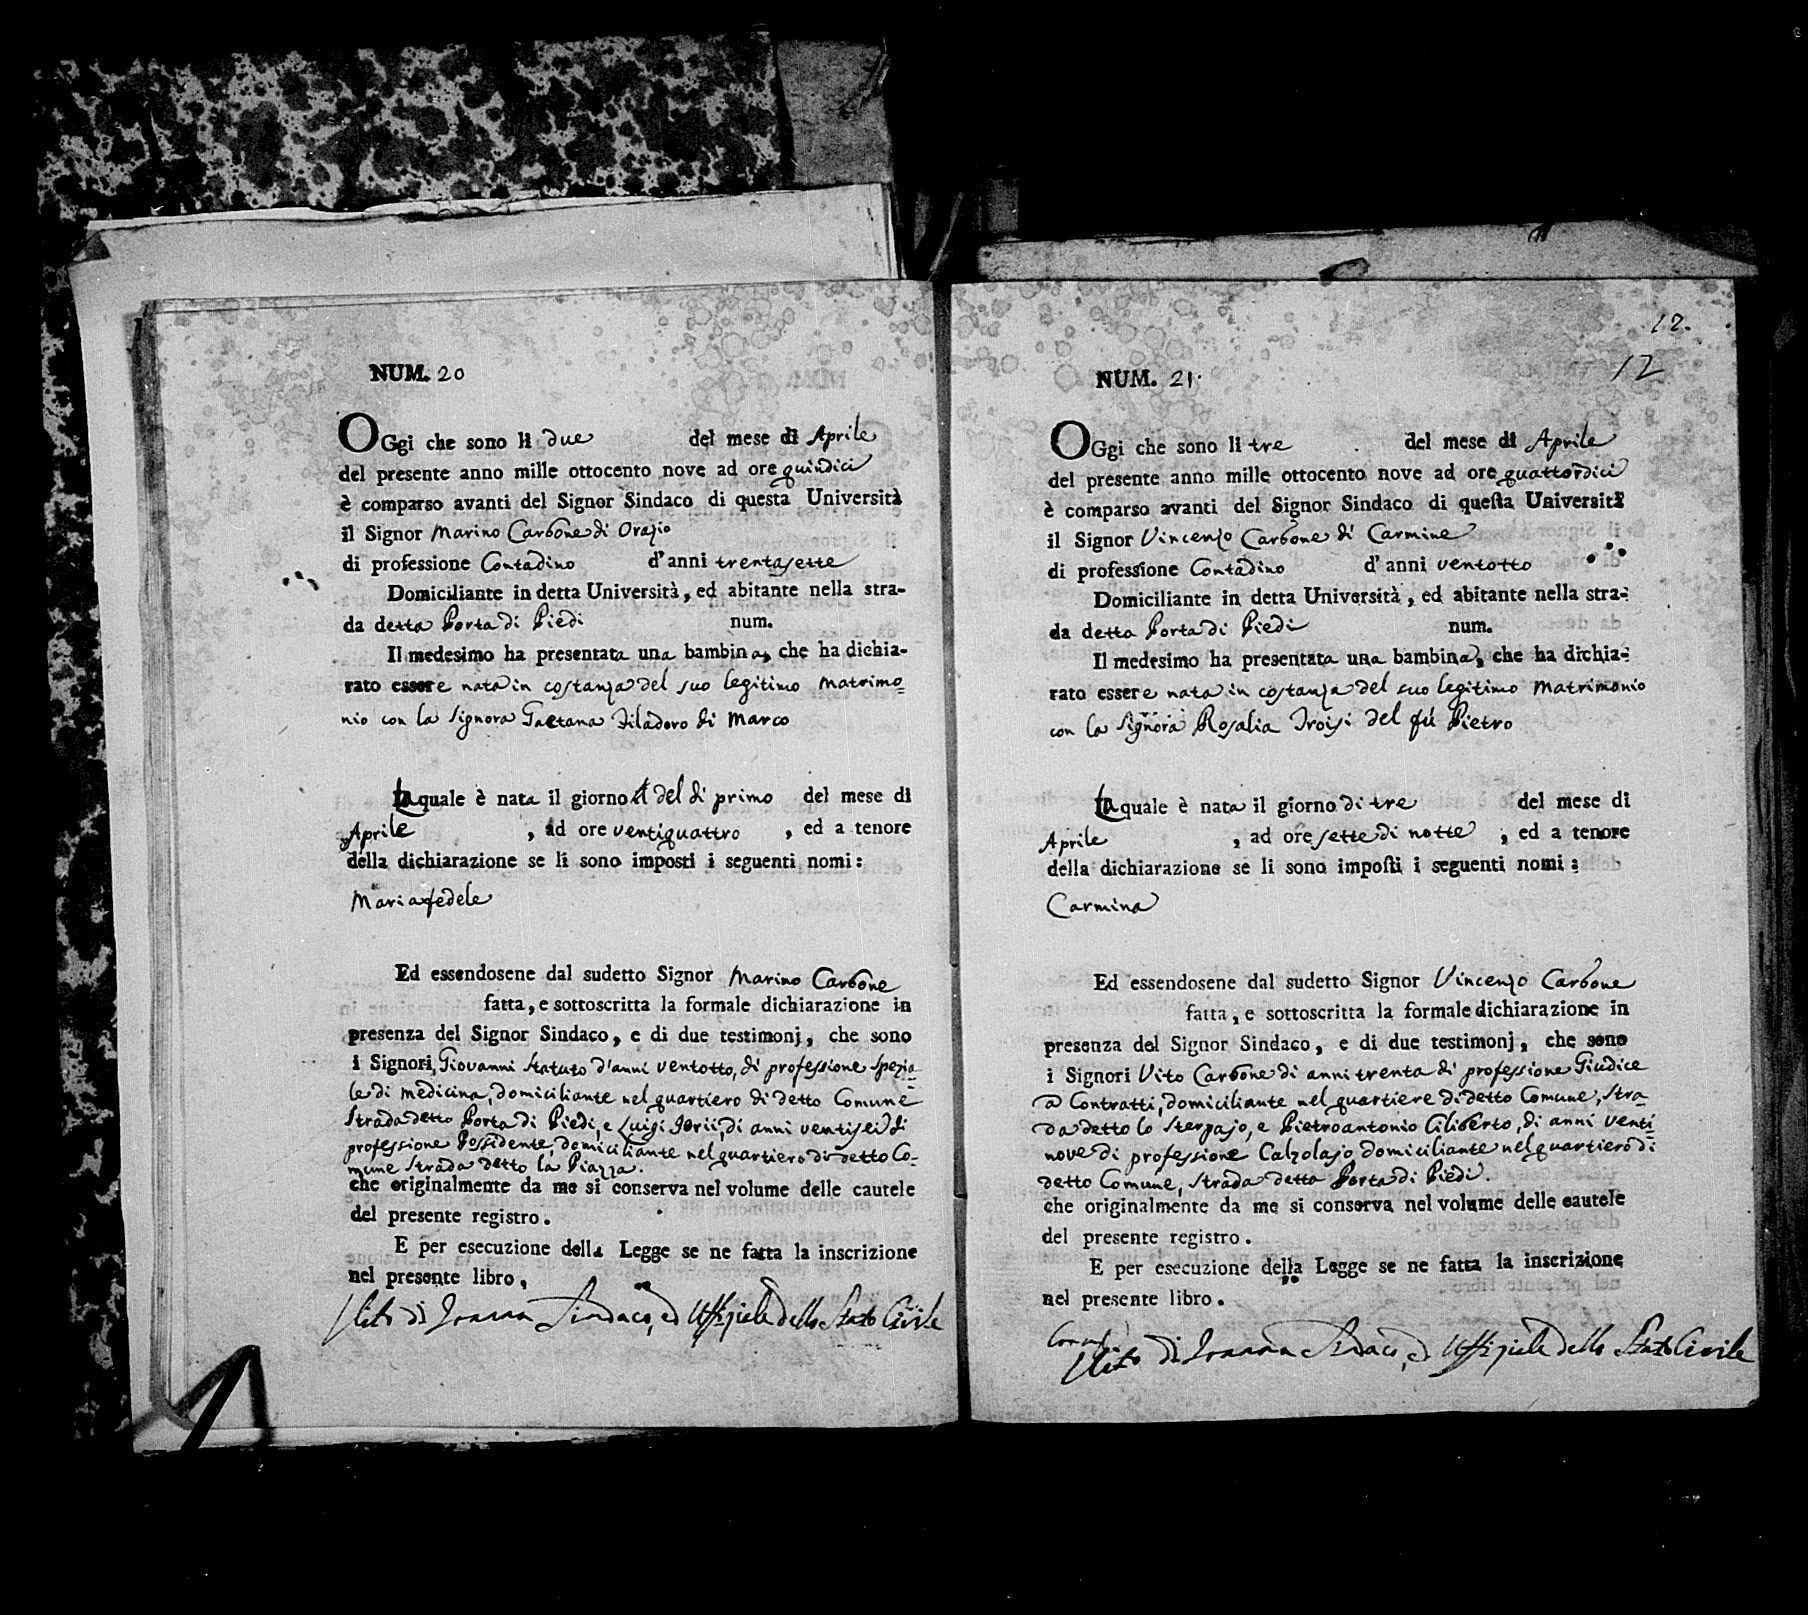 NUM. 20
OGgi che sono li due del mese di Aprile
del presente anno mille ottocento nove ad ore quindici
è comparso avanti del Signor Sindaco di questa Università
il Signor Marino Carbone di Orazio
di professione Contadino d'anni trentasette
Domiciliante in detta Università, ed abitante nella stra-
da detta Porta di Piedi num.
Il medesimo ha presentata una bambina, che ha dichia-
rato essere nata in costanza del suo legitimo Matrimo=
nio con la Signora Gaetana Filadoro di Marco
La quale è nata il giorno del di primo del mese di
Aprile, ad ore ventiquattro, ed a tenore
della dichiarazione se li sono imposti i seguenti nomi:
Mariafedele
Ed essendosene dal sudetto Signor Marino Carbone
fatta, e sottoscritta la formale dichiarazione in
presenza del Signor Sindaco, e di due testimonj, che sono
i Signori Giovanni Statuto d'anni ventotto, di professione Spezia=
le di medicina, domiciliante nel quartiero di detto Comune
Strada detto Porta di Piedi, e Luigi Iorii, di anni ventisei di
professione Possidente, domiciliante nel quartiero di detto Co=
mune Strada detto la Piazza.
che originalmente da me si conserva nel volume delle cautele
del presente registro.
E per esecuzione della Legge se ne fatta la inscrizione
nel presente libro.
Vito di Ioanna Sindaco, ed Uffiziale dello Stato Civile
12.
12
NUM. 21.
OGgi che sono li tre del mese di Aprile
del presente anno mille ottocento nove ad ore quattordici
è comparso avanti del Signor Sindaco di questa Università
il Signor Vincenzo Carbone di Carmine
di professione Contadino d'anni ventotto
Domiciliante in detta Università, ed abitante nella stra-
da detta Porta di Piedi num.
Il medesimo ha presentata una bambina, che ha dichia-
rato essere nata in costanza del suo legitimo Matrimonio
con la Signora Rosalia Troisi del fù Pietro
La quale è nata il giorno di tre del mese di
Aprile, ad ore sette di notte, ed a tenore
della dichiarazione se li sono imposti i seguenti nomi:
Carmina
Ed essendosene dal sudetto Signor Vincenzo Carbone
fatta, e sottoscritta la formale dichiarazione in
presenza del Signor Sindaco, e di due testimonj, che sono
i Signori Vito Carbone di anni trenta di professione Giudice
a Contratti, domiciliante nel quartiere di detto Comune, Stra=
da detto lo Sterpajo, e Pietroantonio Ciliberto, di anni venti=
nove di professione Calzolajo domiciliante nel quartiero di
detto Comune, Strada detta Porta di Piedi.
che originalmente da me si conserva nel volume delle cautele
del presente registro.
E per esecuzione della Legge se ne fatta la inscrizione
nel presente libro.
Vito di Ioanna Sindaco, ed Uffiziale dello Stato Civile